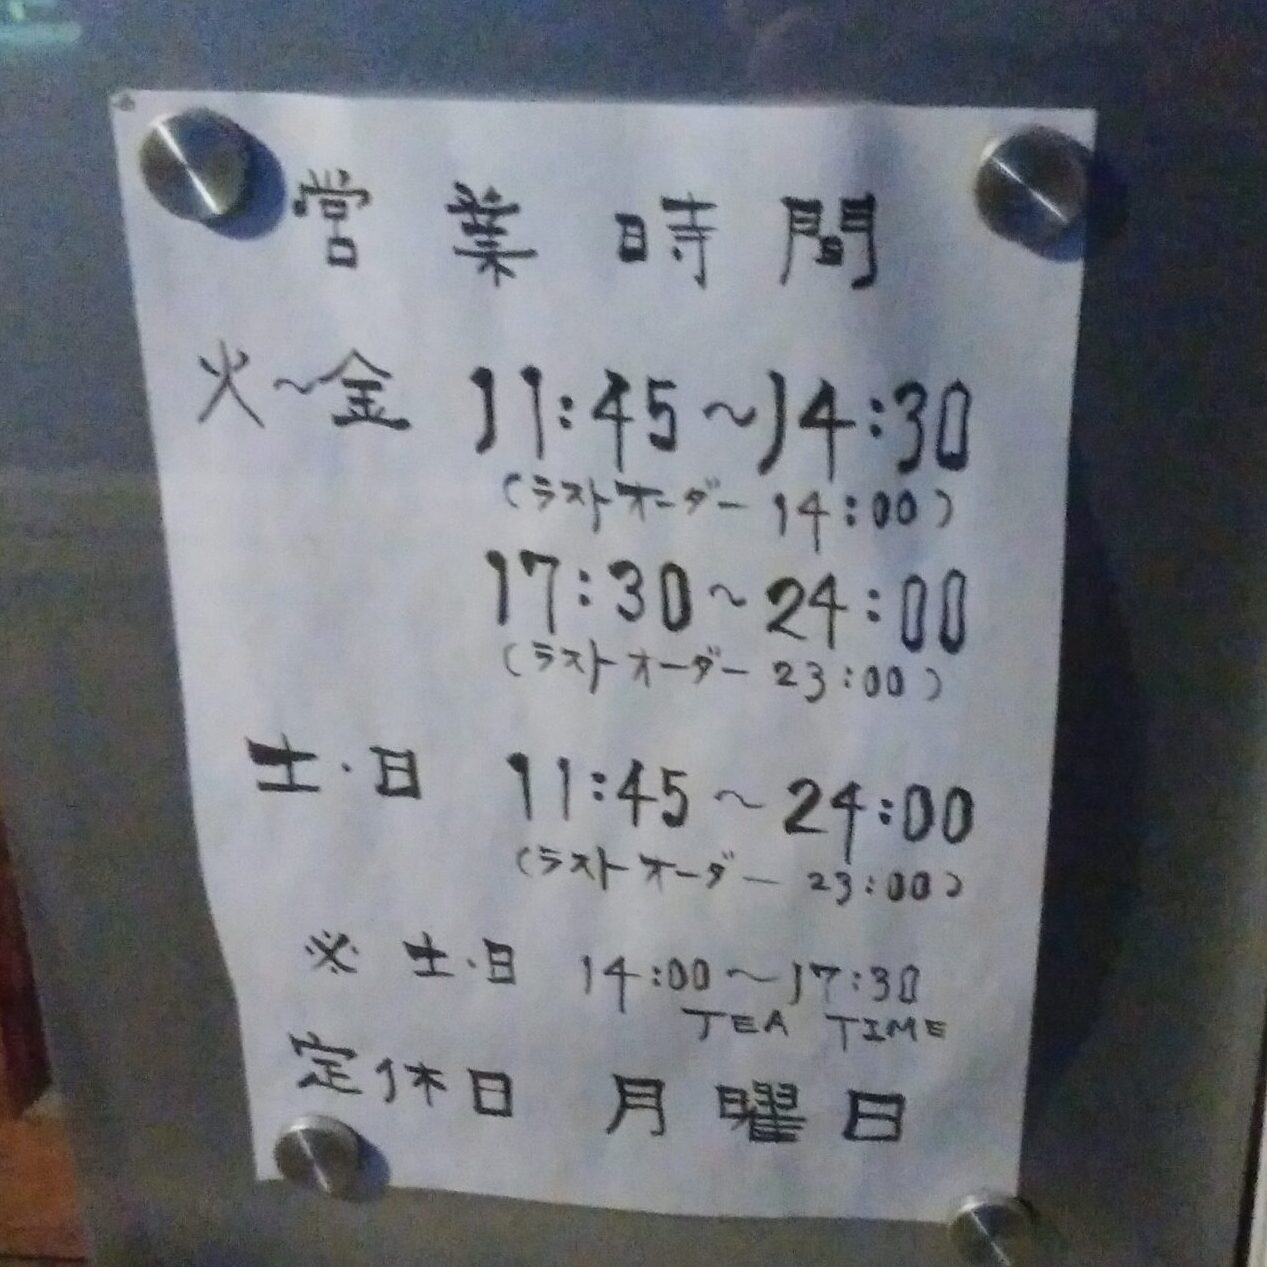 営業時間
火～金 11:45～14:30
(ラストオーダー 14:00)
17:30～24:00
(ラストオーダー 23:00)
土・日 11:45～24:00
(ラストオーダー 23:00)
※ 土・日 14:00～17:30
TEA TIME
定休日 月曜日